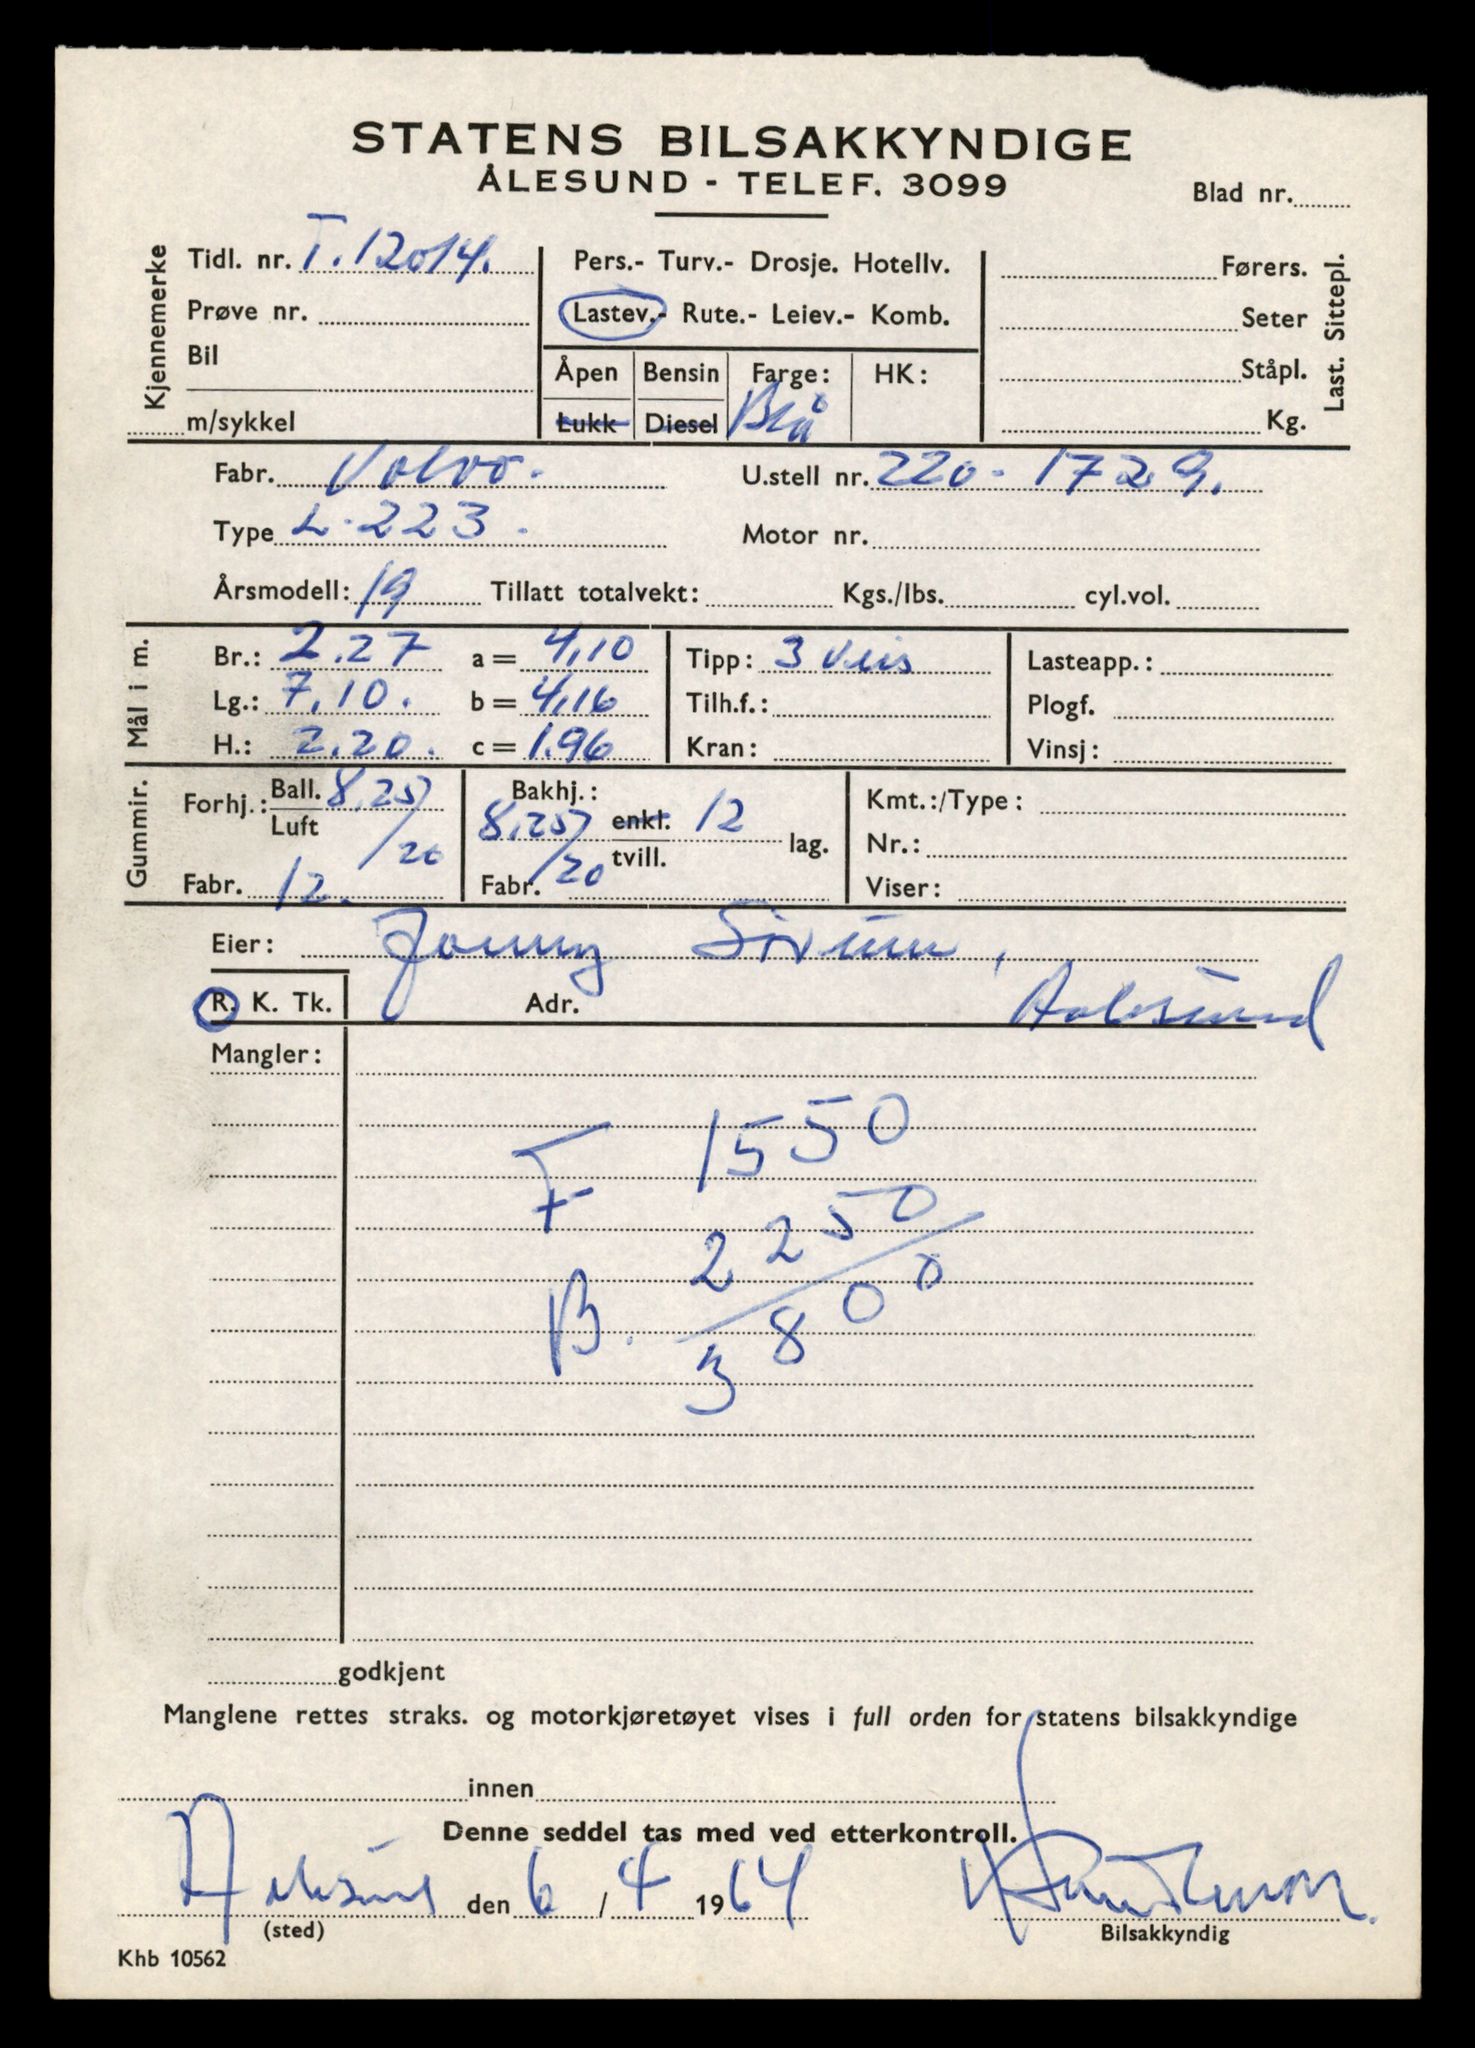 STATENS BILSAKKYNDIGE
ÅLESUND - TELEF. 3099
Blad nr.
Kjennemerke
Tidl. nr. T. 12014.
Prøve nr.
Bil
m/sykkel
Pers.- Turv.- Drosje. Hotellv.
Lastev.- Rute.- Leiev.- Komb.
Åpen Bensin Farge: HK:
Lukk Diesel Blå
Førers.
Seter
Ståpl.
Kg.
Last. Sittepl.
Fabr. Volvo. U.stell nr. 220-1729.
Type L-223. Motor nr.
Årsmodell: 19 Tillatt totalvekt: Kgs./lbs. cyl.vol.
Mål i m.
Br.: 2.27 a = 4,10 Tipp: 3 veis Lasteapp.:
Lg.: 7,10. b = 4,16 Tilh.f.: Plogf.
H.: 2.20. c = 1.96 Kran: Vinsj:
Gummir.
Forhj.: Ball. 8.25/20
Luft
Fabr. 12.
Bakhj.:
8,25/20 enkl. 12 lag.
tvill.
Fabr.
Kmt.:/Type:
Nr.:
Viser:
Eier: Jonny Sörum,
R. K. Tk. Adr. Aalesund
Mangler:
F 1550
B. 2250
3800
godkjent
Manglene rettes straks. og motorkjøretøyet vises i full orden for statens bilsakkyndige
innen
Denne seddel tas med ved etterkontroll.
Aalesund den 6/4 1964
(sted) Bilsakkyndig
Khb 10562